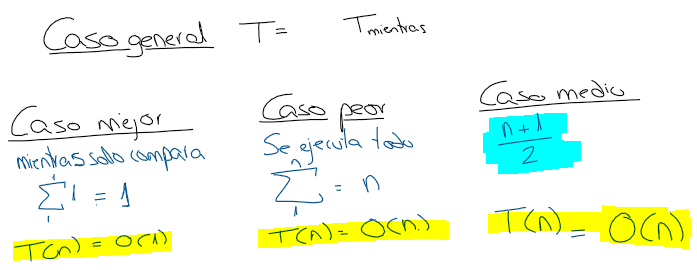 Caso general T= Tmientras
Caso mejor
mientras solo compara
1
Σ 1 = 1
1
T(n) = O(1)
Caso peor
Se ejecuta todo
n
Σ = n
1
T(n) = O(n)
Caso medio
n+1
2
T(n) = O(n)